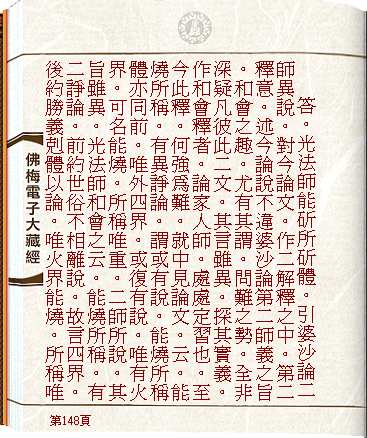 答。光法師能斫所斫體。引婆沙論二
師異說。對今論文。作二解釋之中。第二
釋意。述今論說不違婆沙論第二師義之旨
。和會之趣。尤有其謂。問難之勢。全非
深疑凡彼此二文。其言雖異。探其實義
作和會釋者。論家人師。處處定習也。至
今此釋。何強爲難。就中見論文。云能
燒所稱。有異諍論。謂或有說。能燒所稱
體亦同前。唯外四界。或復有說。唯有火
界。可名能燒。所稱唯重。二師所說。其
旨雖異。光法師和會之云。能燒所稱。有
二諍論。前約世俗不相離說。故言四界。
後約勝義剋體以論。唯火界能燒。所稱唯
佛梅電子大藏經
第148頁